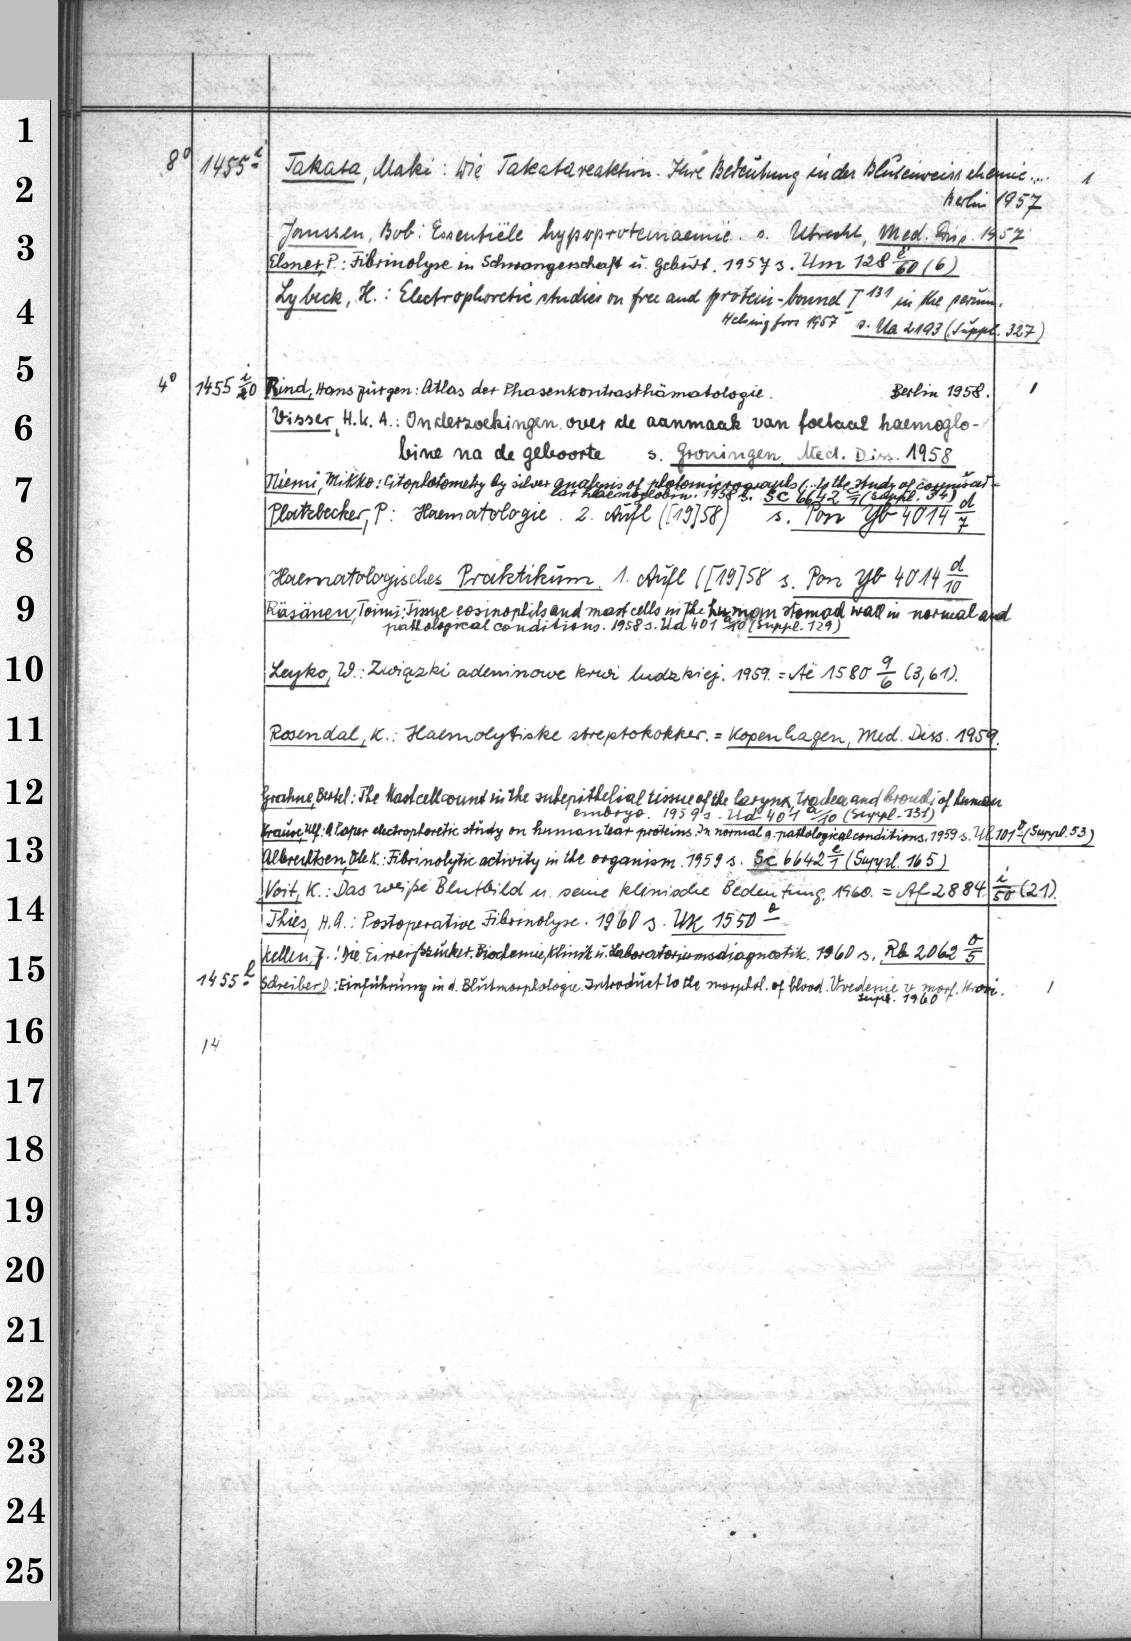 1
8° 1455 i Takata, Maki: Die Takatareaktion. Ihre Bedeutung in der Bluteiweisschemie... 1
2
Berlin 1957
3
Janssen, Bob: Essentiële hypoproteinaemie. s. Utrecht, Med. Diss. 1957
Elsner, P.: Fibrinolyse in Schwangerschaft u. Geburt. 1957 s. Um 128 e/60 (6)
4
Lybeck, H.: Electrophoretic studies on free and protein-bound I 131 in the serum.
Helsingfors 1957 s. Ua 2193 (Suppl. 327)
5
4° 1455 i/20 Rind, Hans Jürgen: Atlas der Phasenkontrasthämatologie. Berlin 1958. 1
6
Visser, H.K.A.: Onderzoekingen over de aanmaak van foetaal haemoglo-
bine na de geboorte s. Groningen, Med. Diss. 1958
7
Niemi, Mikko: Citophotometry by silver analysis of photomicrographs (... to the study of
lar haemoglobin. 1958 s. Sc 6642 e/1 (Suppl. 34)
Platzbecker, P: Haematologie. 2. Aufl ([19]58) s. Pon Yb 4014 d/7
8
Haematologisches Praktikum. 1. Aufl ([19]58 s. Pon Yb 4014 d/10
9
Räsänen, Toimi: Tissue eosinophils and mast cells in the human stomach wall in normal and
pathological conditions. 1958 s. Ud 401 a/10 (Suppl. 129)
10
Leyko, W.: Związki adeninowe krwi ludzkiej. 1959. = Ac 1580 9/6 (3,61).
11
Rosendal, K.: Haemolytiske streptokokker. = Kopenhagen, Med. Diss. 1959.
12
Grahne, Bertel: The Mastcellcount in the subepithelial tissue of the larynx, trachea and bronchi of human
embryo. 1959 s. Ud 401 a/10 (Suppl. 131)
Krause, Ulf: A Paper electrophoretic study on human tear proteins. In normal a. pathological conditions. 1959 s. 101 (Suppl. 53)
13
Albrechtsen, Ole K.: Fibrinolytic activity in the organism. 1959 s. Sc 6642 e/1 (Suppl. 165)
Voit, K.: Das weiße Blutbild u. seine klinische Bedeutung. 1960. = Af 2884 i/50 (21).
14
Thies, H.A.: Postoperative Fibrinolyse. 1960 s. Uk 1550 o
Kellen, J.: Die Eiweißzucker. Biochemie, Klinik u. Laboratoriumsdiagnostik. 1960 s. Rb 2062 o/5
15
1455 l Schreiber, D.: Einführung in d. Blutmorphologie. Introduct to the morphol. of blood. Uvedenie v morf. krovi. 1
1960
16
14
17
18
19
20
21
22
23
24
25